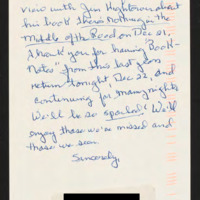 view with Jim Hightower about
his book There's Nothing in the
Middle of the Road on Dec 21.
Thank you for having "Book-
Notes" from this last year
return tonight, Dec 22, and
continuing for many nights
We'll be so spoiled! We'll
enjoy those we've missed and
those we seen.
Sincerely,